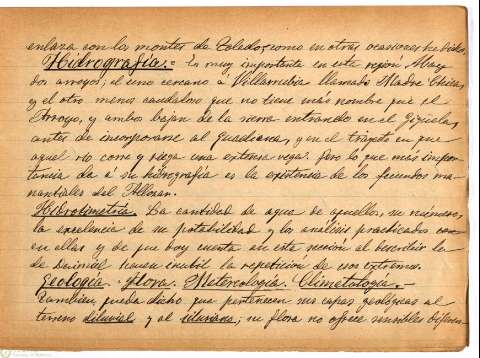 enlaza con los montes de Toledo, como en otras ocasiones he dicho.
Hidrografía.= Es muy importante en esta región. Hay
dos arroyos; el uno cercano á Villarrubia llamado Madre Chica,
y el otro menos caudaloso que no tiene más nombre que el
Arroyo, y ambos bajan de la sierra entrando en el Gigüela,
antes de incorporarse al Guadiana, y en el trayecto en que
aquel rio corre y riega una extensa vega. Pero lo que más impor-
tancia da á su hidrografía es la existencia de los fecundos ma-
nantiales del Alloran.
Hidrotimetria. La cantidad de agua de aquellos, su número,
la excelencia de su potabilidad y los analisis practicados con
en ellas y de que doy cuenta en esta sección al describir la
de Daimiel hacen inutil la repetición de esos extremos.
Geología. Flora. Metereología. Climatología.-
Tambien queda dicho que pertenecen sus capas geológicas al
terreno diluvial y al siluriano; su flora no ofrece sensibles diferen-